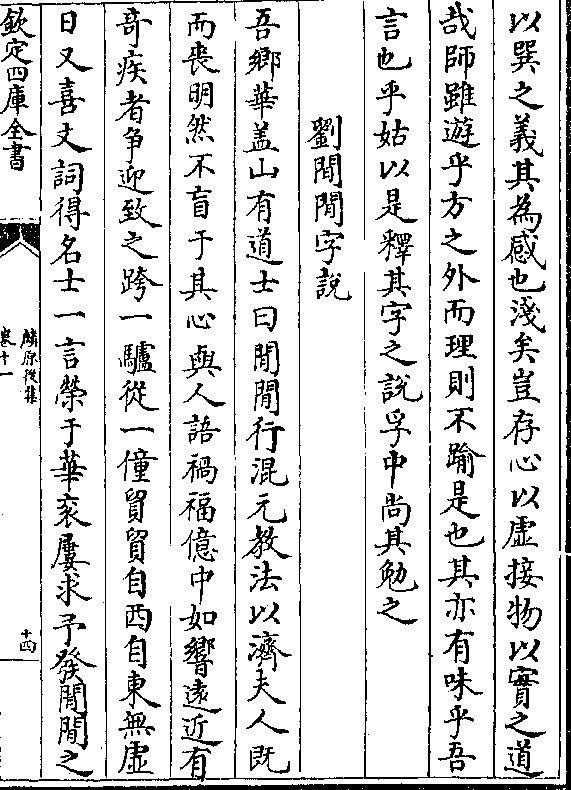 以巽之義其為感也淺矣豈存心以虚接物以實之道
哉師雖遊乎方之外而理則不踰是也其亦有味乎吾
言也乎姑以是釋其字之說孚中尚其勉之
劉閒閒字說
吾鄉華盖山有道士曰閒閒行混元教法以濟夫人既
而喪明然不盲于其心與人語禍福億中如響遠近有
奇疾者争迎致之跨一驢從一僮貿貿自西自東無虛
日又喜文詞得名士一言榮于華衮屢求予發閒閒之
欽定四庫全書
麟原後集
卷十一
十四